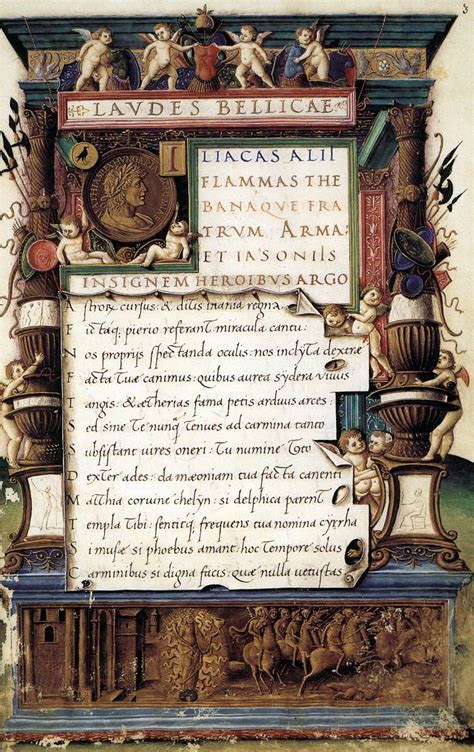 3
LAVDES BELLICAE
ILIACAS ALII
FLAMMAS THE
BANAQVE FRA
TRVM ARMA:
ET IASONIS
INSIGNEM HEROIBVS ARGO
Astrorẏ cursus: & ditis inania regna
Fictaq; pierio referant miracula cantu:
Nos proprijs spectanda oculis: nos inclyta dextrae
Facta tuae canimus: quibus aurea sydera vivus
Tangis: & aetherias fama petis arduus arces:
Sed sine Te nunq̃ Tenues ad carmina tanto
Subsistant vires oneri: Tu numine Toto
Dexter ades: da maeoniam tua facta canenti
Matthia corvine chelyn: si delphica parent
Templa Tibi: sentitq; frequens tua nomina cyrrha
Si musae si phoebus amant: hoc Tempore solus
Carminibus si digna facis: quae nulla vetustas